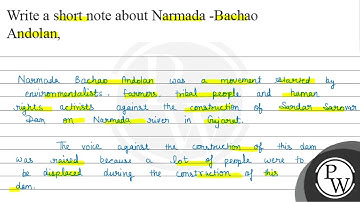 Write a short note about Narmada -Bachao
Andolan,
Narmada Bachao Andolan was a movement started by
environmentalists, farmers, tribal people and human
rights activists against the construction of Sardar Sarovar
Dam on Narmada river in Gujarat.
The voice against the construction of this dam
was raised because a lot of people were to
be displaced during the construction of this
dam.
PW